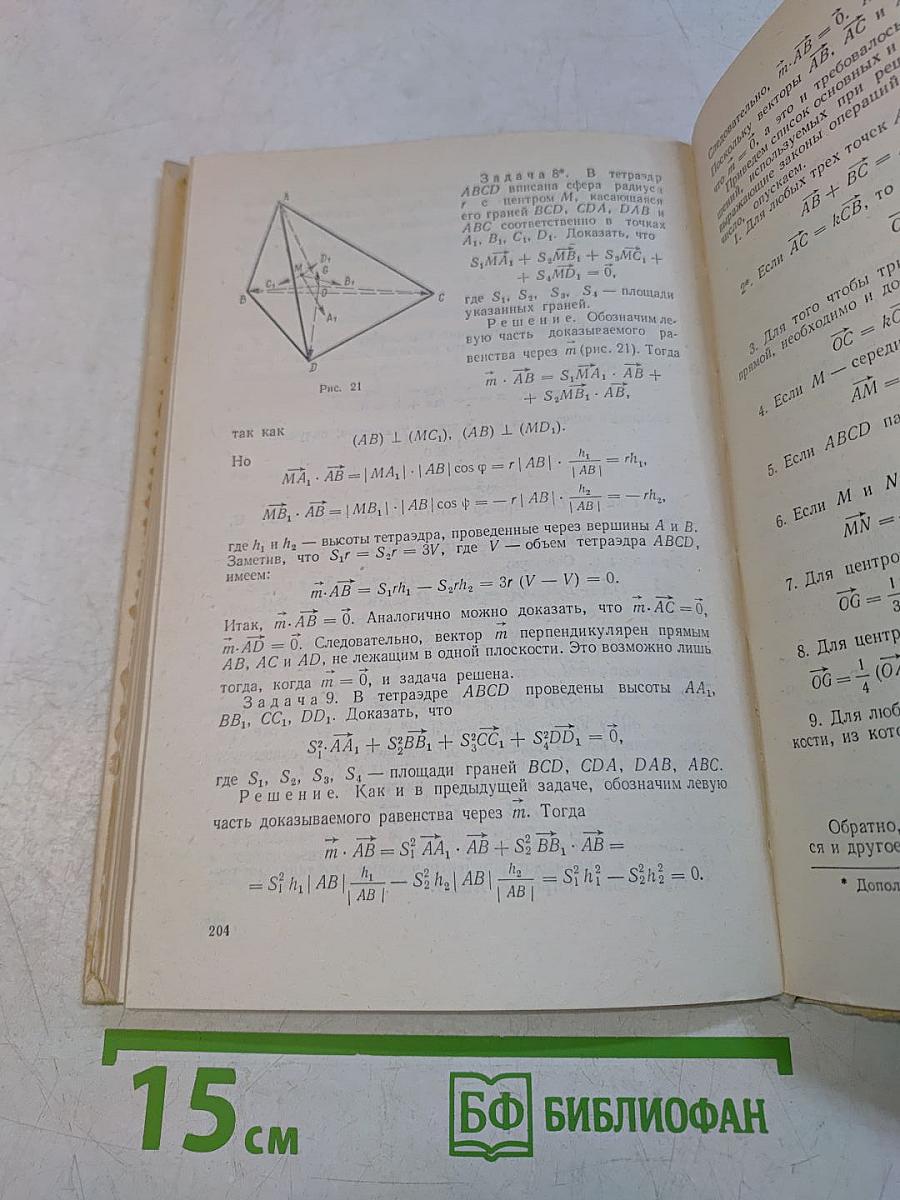 Задача 8*. В тетраэдр
ABCD вписана сфера радиуса
r с центром M, касающаяся
его граней BCD, CDA, DAB и
ABC соответственно в точках
A₁, B₁, C₁, D₁. Доказать, что
S₁MA₁⃗ + S₂MB₁⃗ + S₃MC₁⃗ +
+ S₄MD₁⃗ = 0⃗,
где S₁, S₂, S₃, S₄ — площади
указанных граней.
Решение. Обозначим ле-
вую часть доказываемого ра-
венства через m⃗ (рис. 21). Тогда
m⃗ · AB⃗ = S₁MA₁⃗ · AB⃗ +
+ S₂MB₁⃗ · AB⃗,
A
D₁
M
G
C₁
B₁
O
B
C
A₁
D
Рис. 21
так как
(AB) ⊥ (MC₁), (AB) ⊥ (MD₁).
Но
MA₁⃗ · AB⃗ = |MA₁| · |AB| cos φ = r|AB| · h₁/|AB| = rh₁,
MB₁⃗ · AB⃗ = |MB₁| · |AB| cos ψ = — r|AB| · h₂/|AB| = — rh₂,
где h₁ и h₂ — высоты тетраэдра, проведенные через вершины A и B.
Заметив, что S₁r = S₂r = 3V, где V — объем тетраэдра ABCD,
имеем:
m⃗·AB⃗ = S₁rh₁ — S₂rh₂ = 3r (V — V) = 0.
Итак, m⃗·AB⃗ = 0⃗. Аналогично можно доказать, что m⃗·AC⃗ = 0⃗,
m⃗·AD⃗ = 0⃗. Следовательно, вектор m⃗ перпендикулярен прямым
AB, AC и AD, не лежащим в одной плоскости. Это возможно лишь
тогда, когда m⃗ = 0⃗, и задача решена.
Задача 9. В тетраэдре ABCD проведены высоты AA₁,
BB₁, CC₁, DD₁. Доказать, что
S₁²·AA₁⃗ + S₂²BB₁⃗ + S₃²CC₁⃗ + S₄²DD₁⃗ = 0⃗,
где S₁, S₂, S₃, S₄ — площади граней BCD, CDA, DAB, ABC.
Решение. Как и в предыдущей задаче, обозначим левую
часть доказываемого равенства через m⃗. Тогда
m⃗ · AB⃗ = S₁² AA₁⃗ · AB⃗ + S₂² BB₁⃗ · AB⃗ =
= S₁² h₁|AB| h₁/|AB| — S₂² h₂|AB| h₂/|AB| = S₁² h₁² — S₂² h₂² = 0.
204
Следовательно, m⃗·AB⃗ = 0⃗.
Поскольку векторы AB⃗, AC⃗ и
что m⃗ = 0, а это и требовалось
Приведем список основных и
шений, используемых при
выражающие законы операций
число, опускаем.
1. Для любых трех точек A
AB⃗ + BC⃗ =
2*. Если AC⃗ = kCB⃗, то
3. Для того чтобы
прямой, необходимо и
OC⃗ =
4. Если M —
AM⃗ =
5. Если ABCD
6. Если M и N
MN⃗ =
7. Для
OG⃗ = 1/3
8. Для
OG⃗ = 1/4
9. Для
кости, из
Обратно,
ся и другое
*
15 см
БФ БИБЛИОФАН